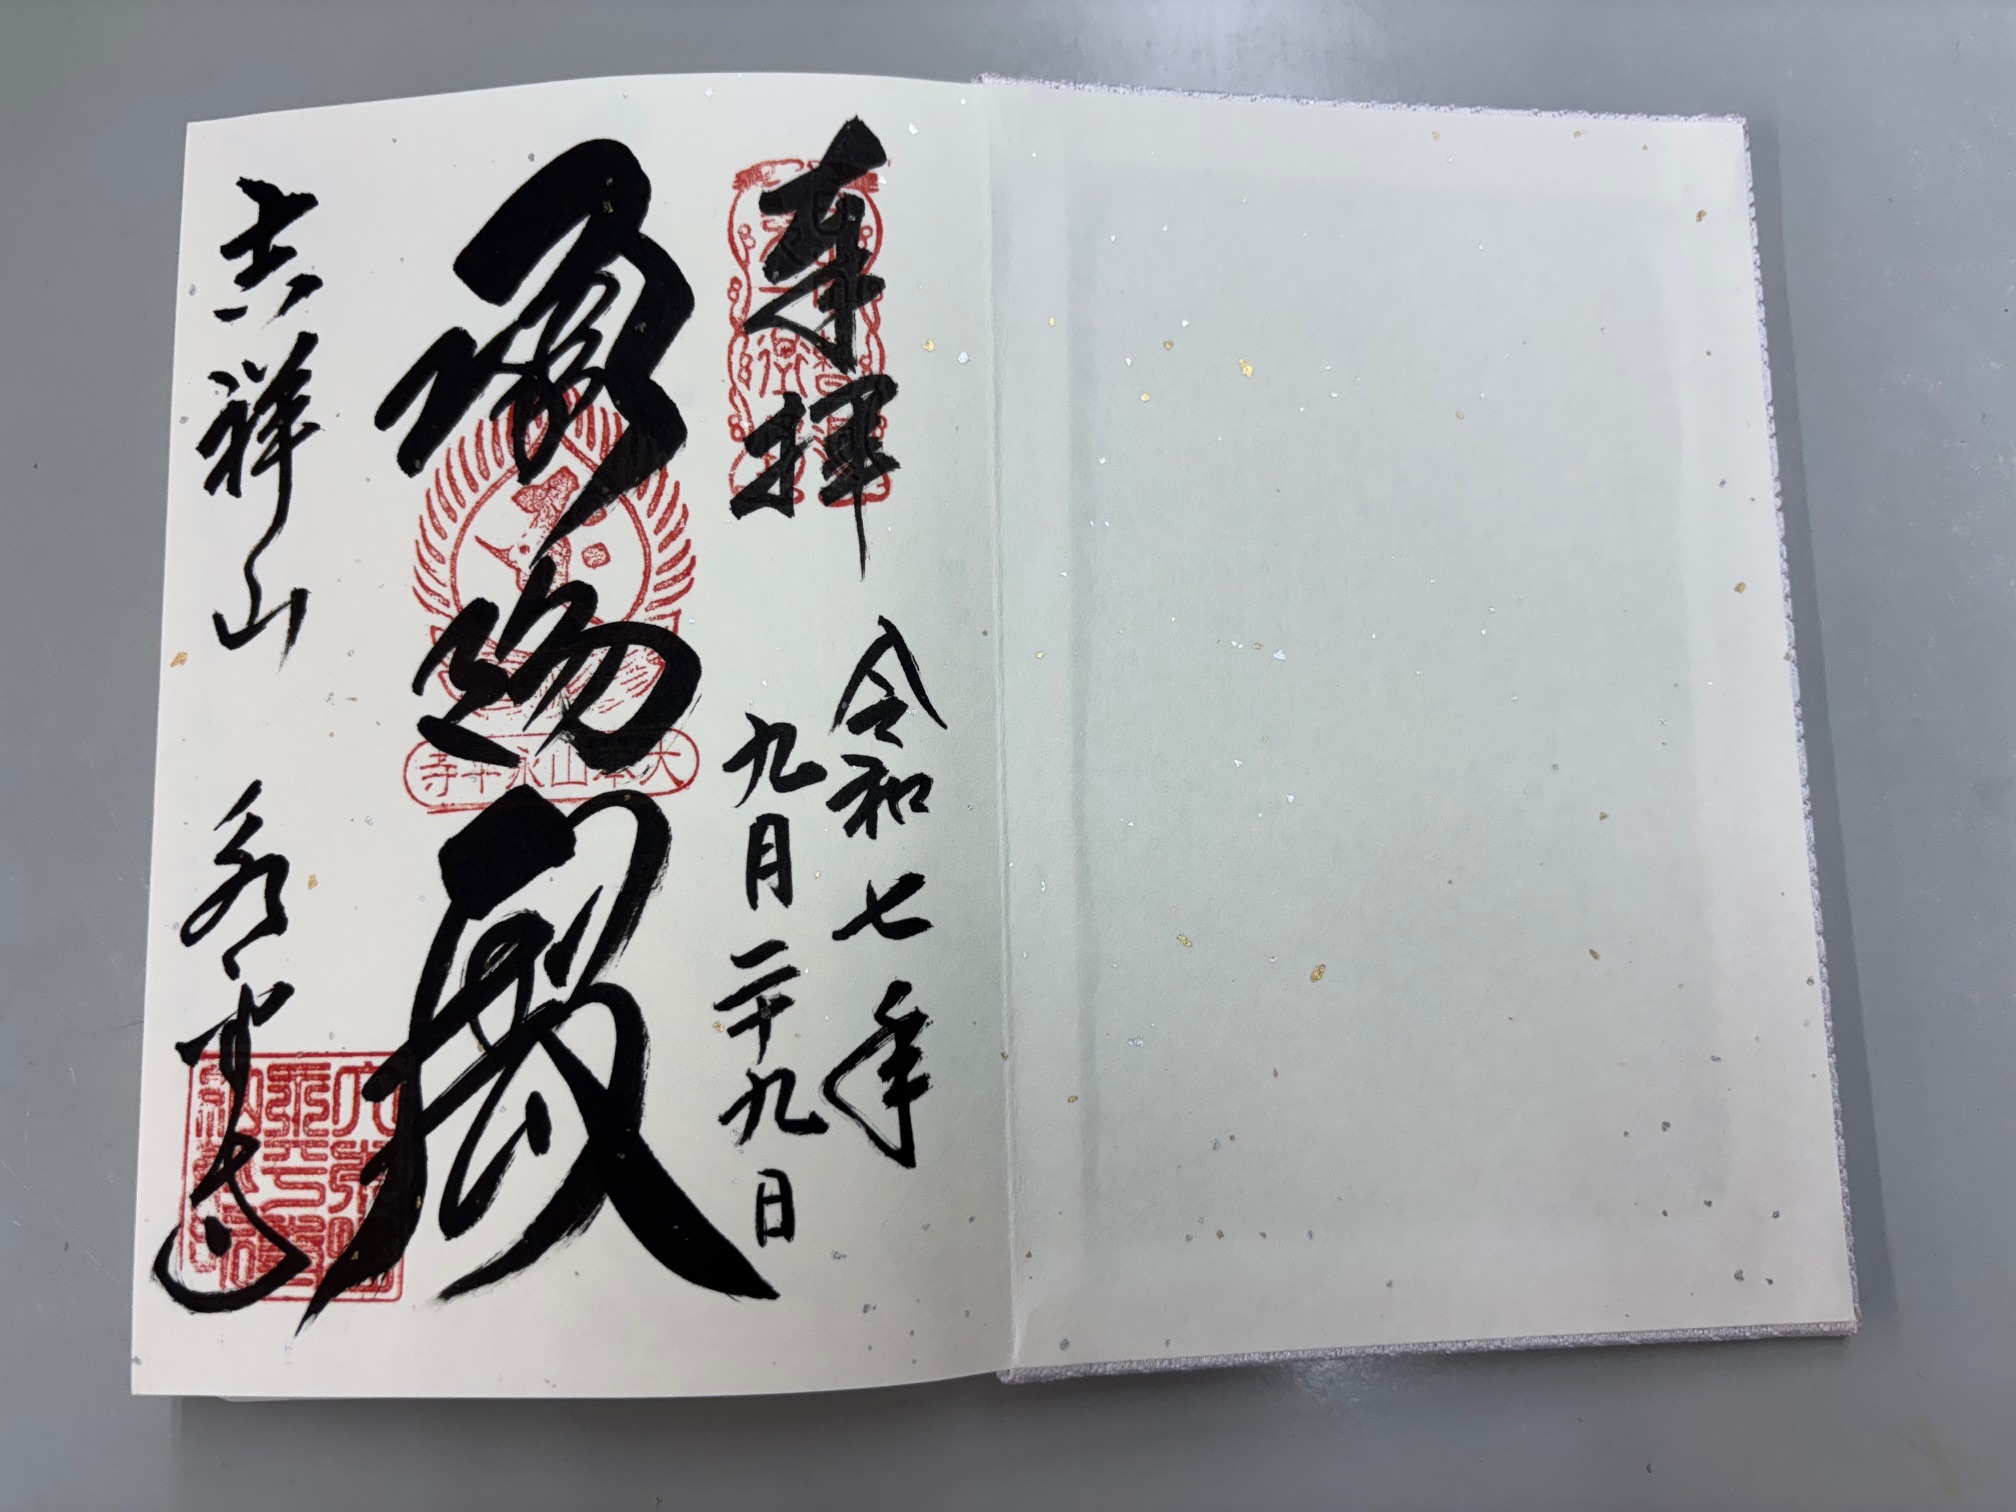 奉拝
令和七年
九月二十九日
承陽殿
大本山永平寺
吉祥山 永平寺